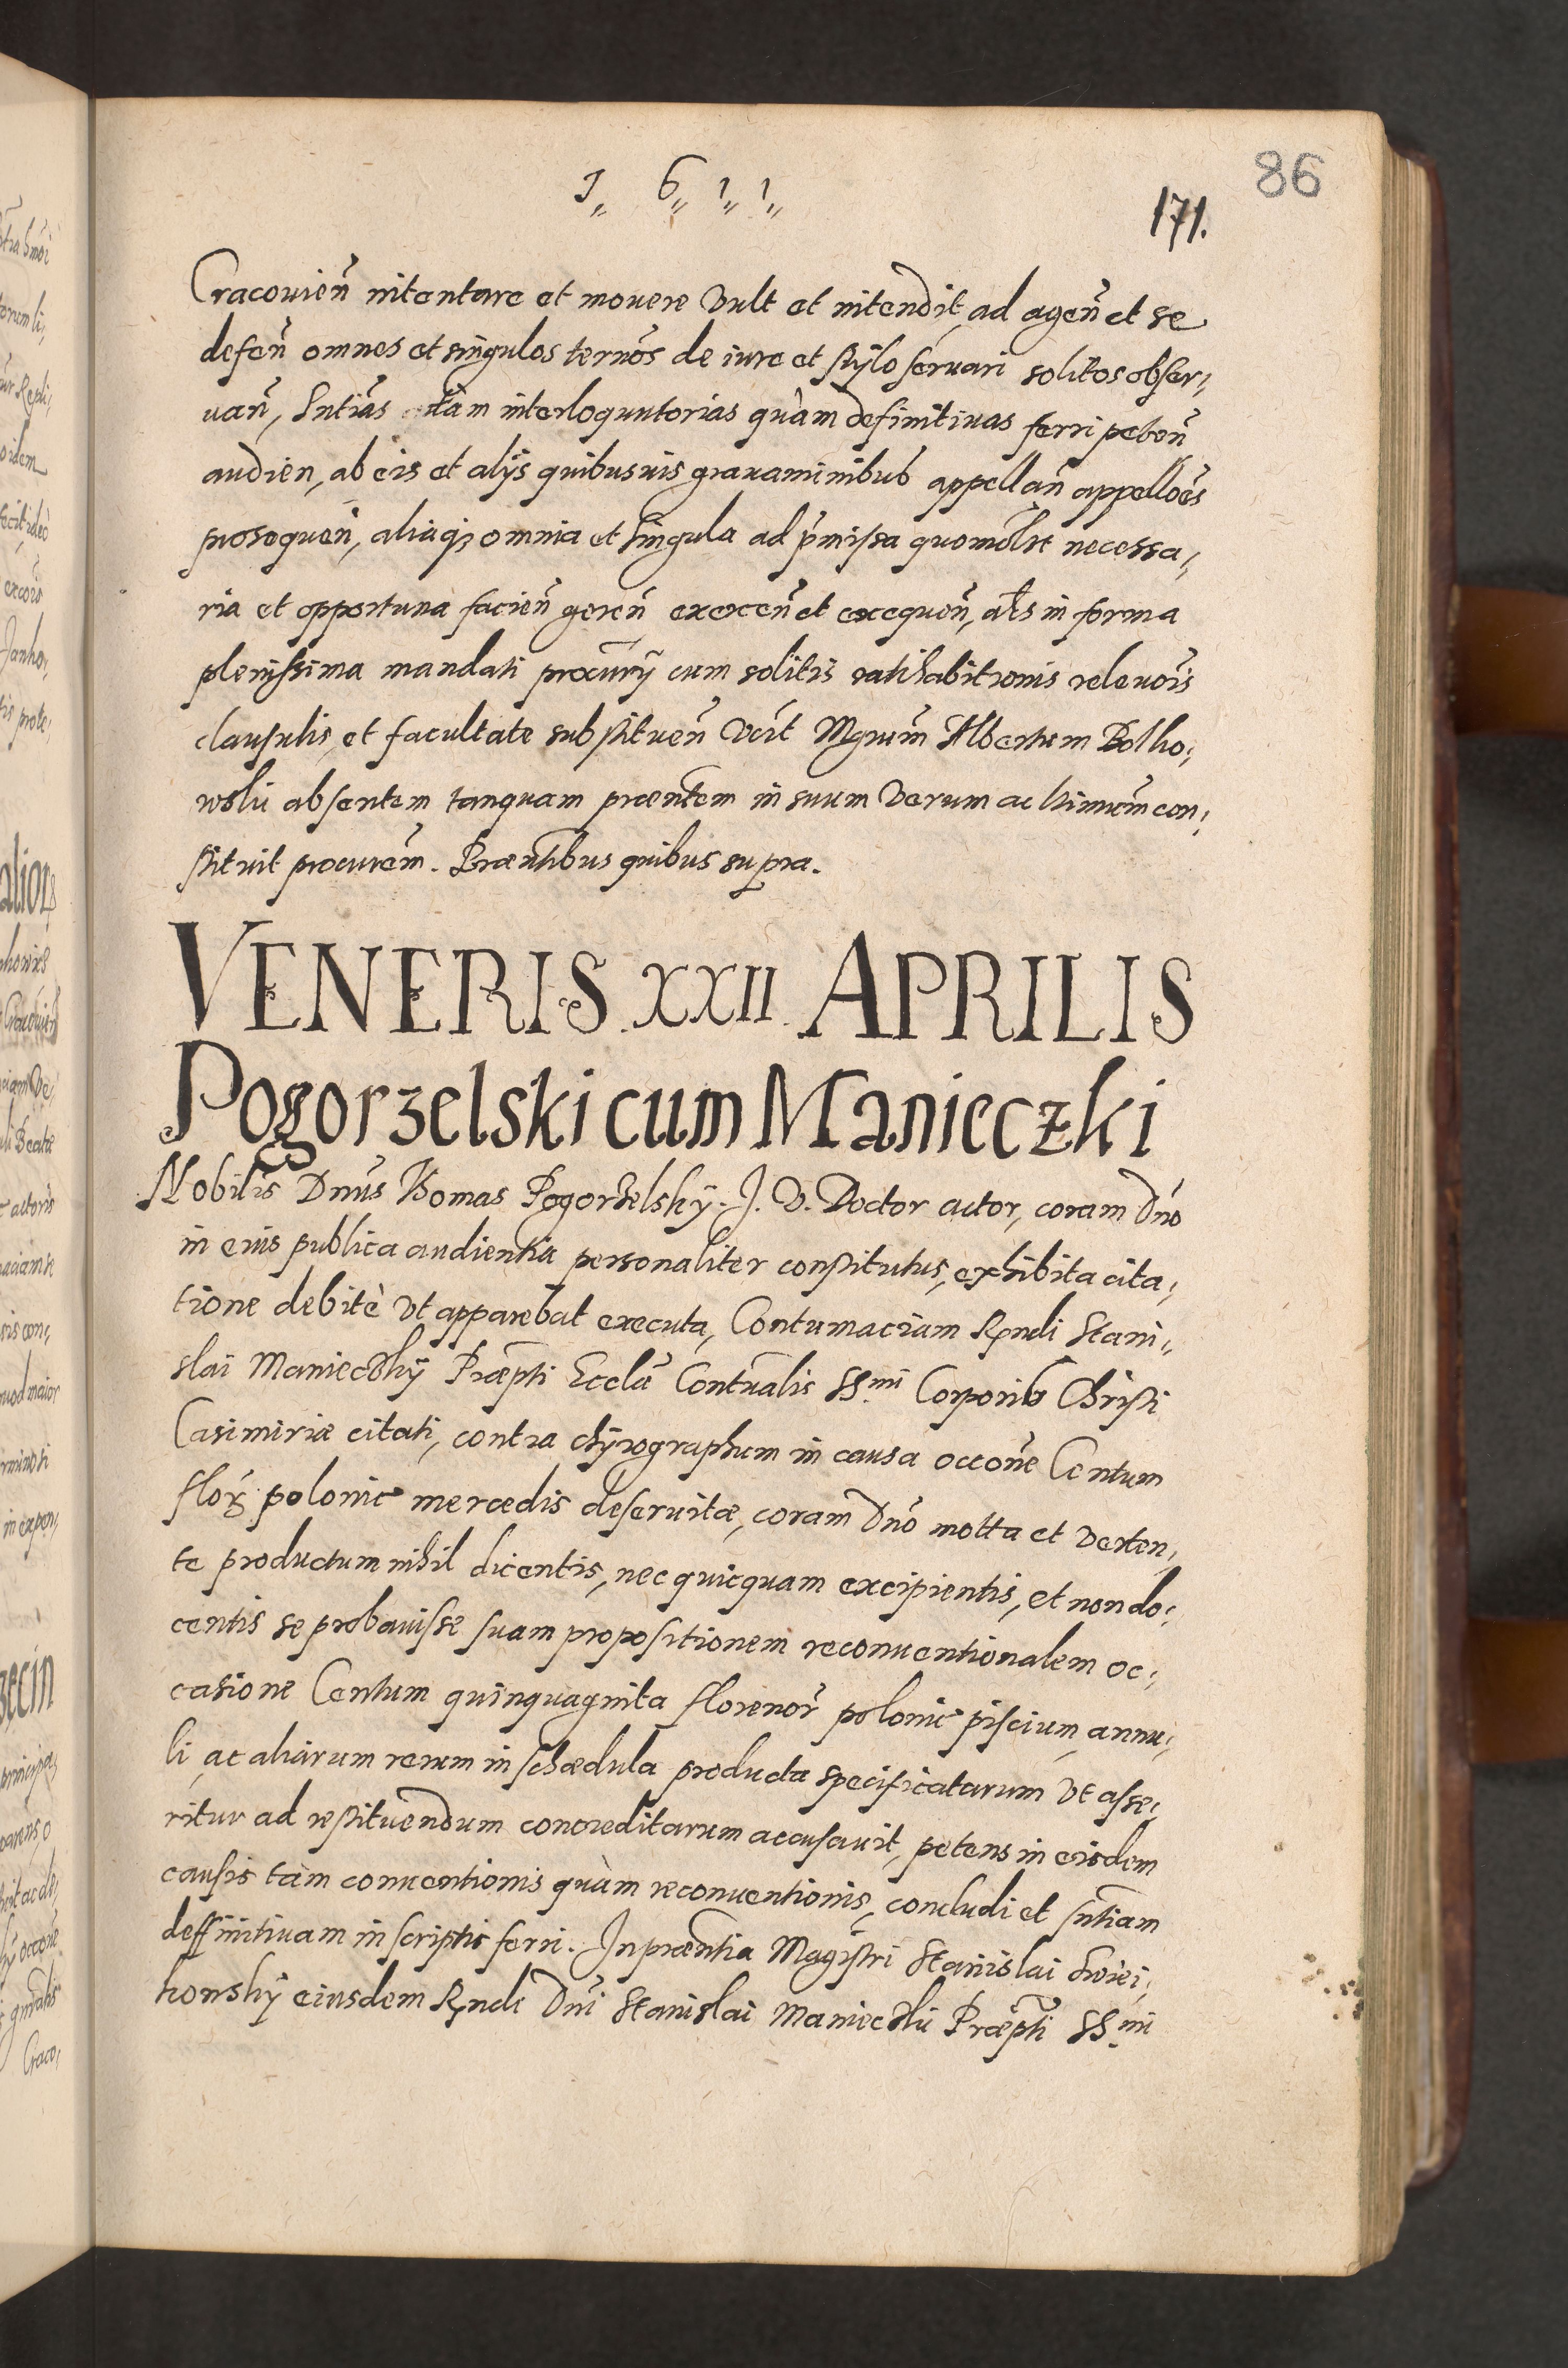 86
1„ 6„ 1„ 1„
171.
Cracovień intentare et movere vult et intendit, ad ageń et se
defeń omnes et singulos terños de iure et stylo servari solitos obser„
vań, Sntias tàm interloquutorias quàm definitivas ferri peteń
audien, ab eis et alijs quibusvis gravaminibus appellań appellões
prosequeń, aliaq; omnia et singula ad p̃missa quomolt necessa„
ria et opportuna facień gereń exerceń et exequeń, als in forma
plenissima mandati procurÿ cum solitis ratihabitionis relevois
clausulis, et facultate substitueń vcit Mgrum Albertum Bolho„
wski absentem tanquam praentem in suum verum ac ltimum con„
stituit procurem. Praentibus quibus supra.
VENERIS XXII APRILIS
Pogorzelski cum Manieczki
Nobilis Dnus Thomas Pogorzelskÿ J. V. Doctor actor, coram Dno
in eius publica audientia personaliter constitutus, exhibita cita„
tione debitè vt apparebat executa, Contumaciam Rndi Stani„
slai Manieczkÿ Praepti Eccläe Contualis SS.mi Corporis Christi
Casimiriæ citati, contra chÿrographum in causa occone Centum
flor polonic mercedis deservitæ, coram Dno motta et verten„
te productum nihil dicentis, nec quicquam excipientis, et non do„
centis se probavisse suam propositionem reconventionalem oc„
casione Centum quinquaginta florenor polonic piscium, annu„
li, ac aliarum rerum in schædula producta specificatarum vt asse„
ritur ad restituendum concreditarum accusavit, petens in eisdem
causis tàm conventionis quàm reconventionis, concludi et sntiam
deffinitivam in scriptis ferri. In praentia Magistri Stanislai
konskÿ eiusdem Rndi Dni Stanislai Manieczki Praepti SS.mi